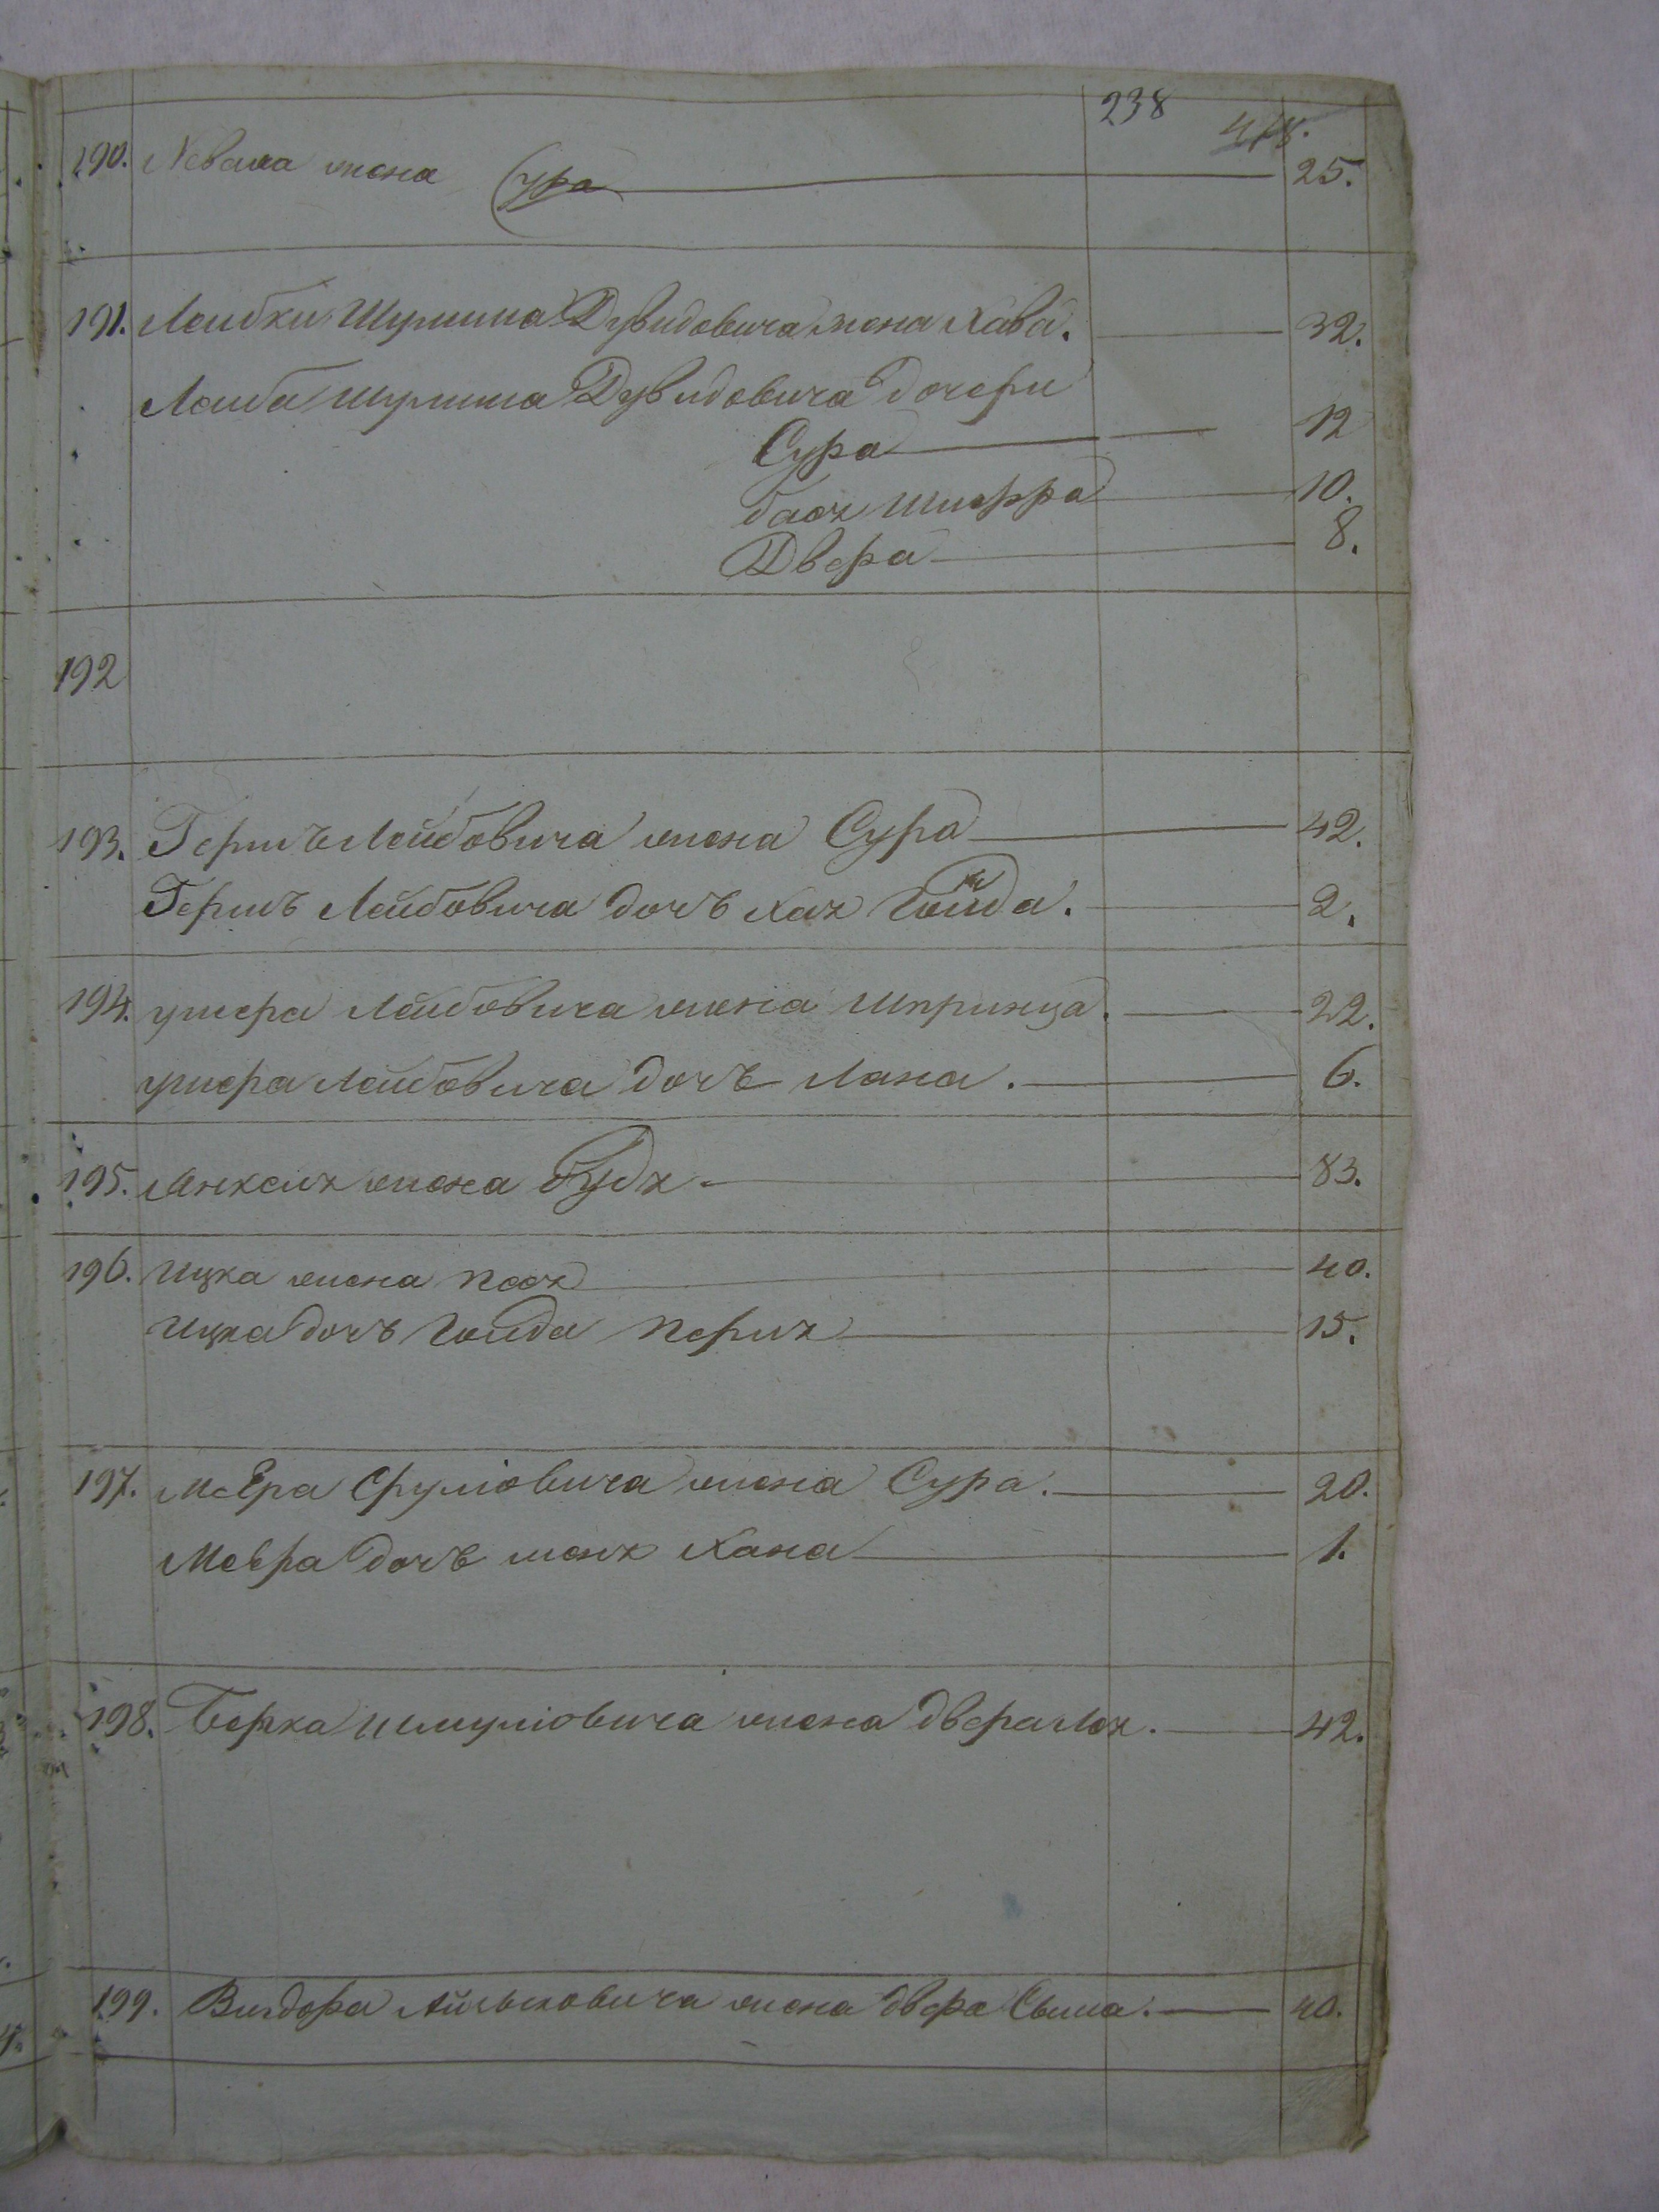 238
418.
190. жена Сура 25.
191. Лейбки Шулима Дувидовича жена Хава. 32.
Лейба Шулима Дувидовича дочери
Сура 12
бася Шифра 10.
Двера 8.
192
193. Гершъ Лейбовича жена Сура 42.
Гершъ Лейбовича дочь Хая Гольда. 2.
194. ушера Лейбовича жена Шпринца. 22.
ушера Лейбовича дочь Хана. 6.
195. Анкеля жена 83.
196. ицка жена песя 40.
ицка дочь Гольда перля 15.
197. меера Сруліовича жена Сура. 20.
Меера дочь Хана 1.
198. Берка шмуліовича жена двера лея. 42.
199. Вигдора жена двера Сыма. 40.